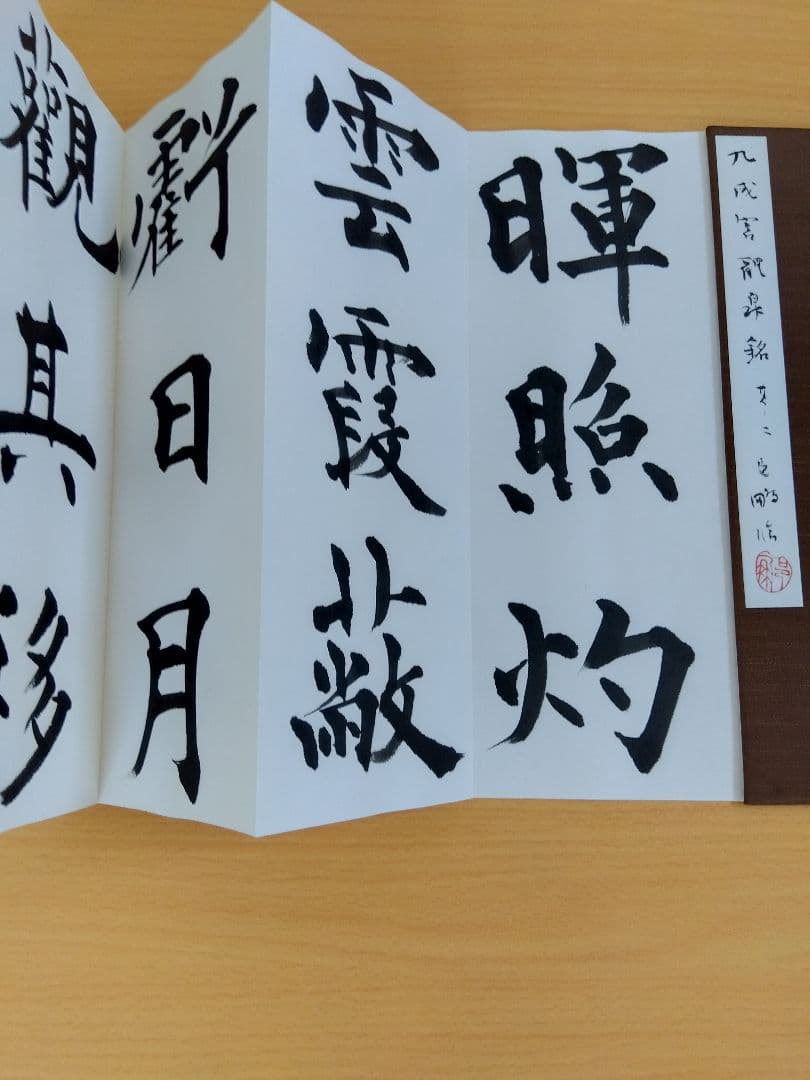 九成宮醴泉銘 其二
暉照灼
雲霞蔽
虧日月
觀其移